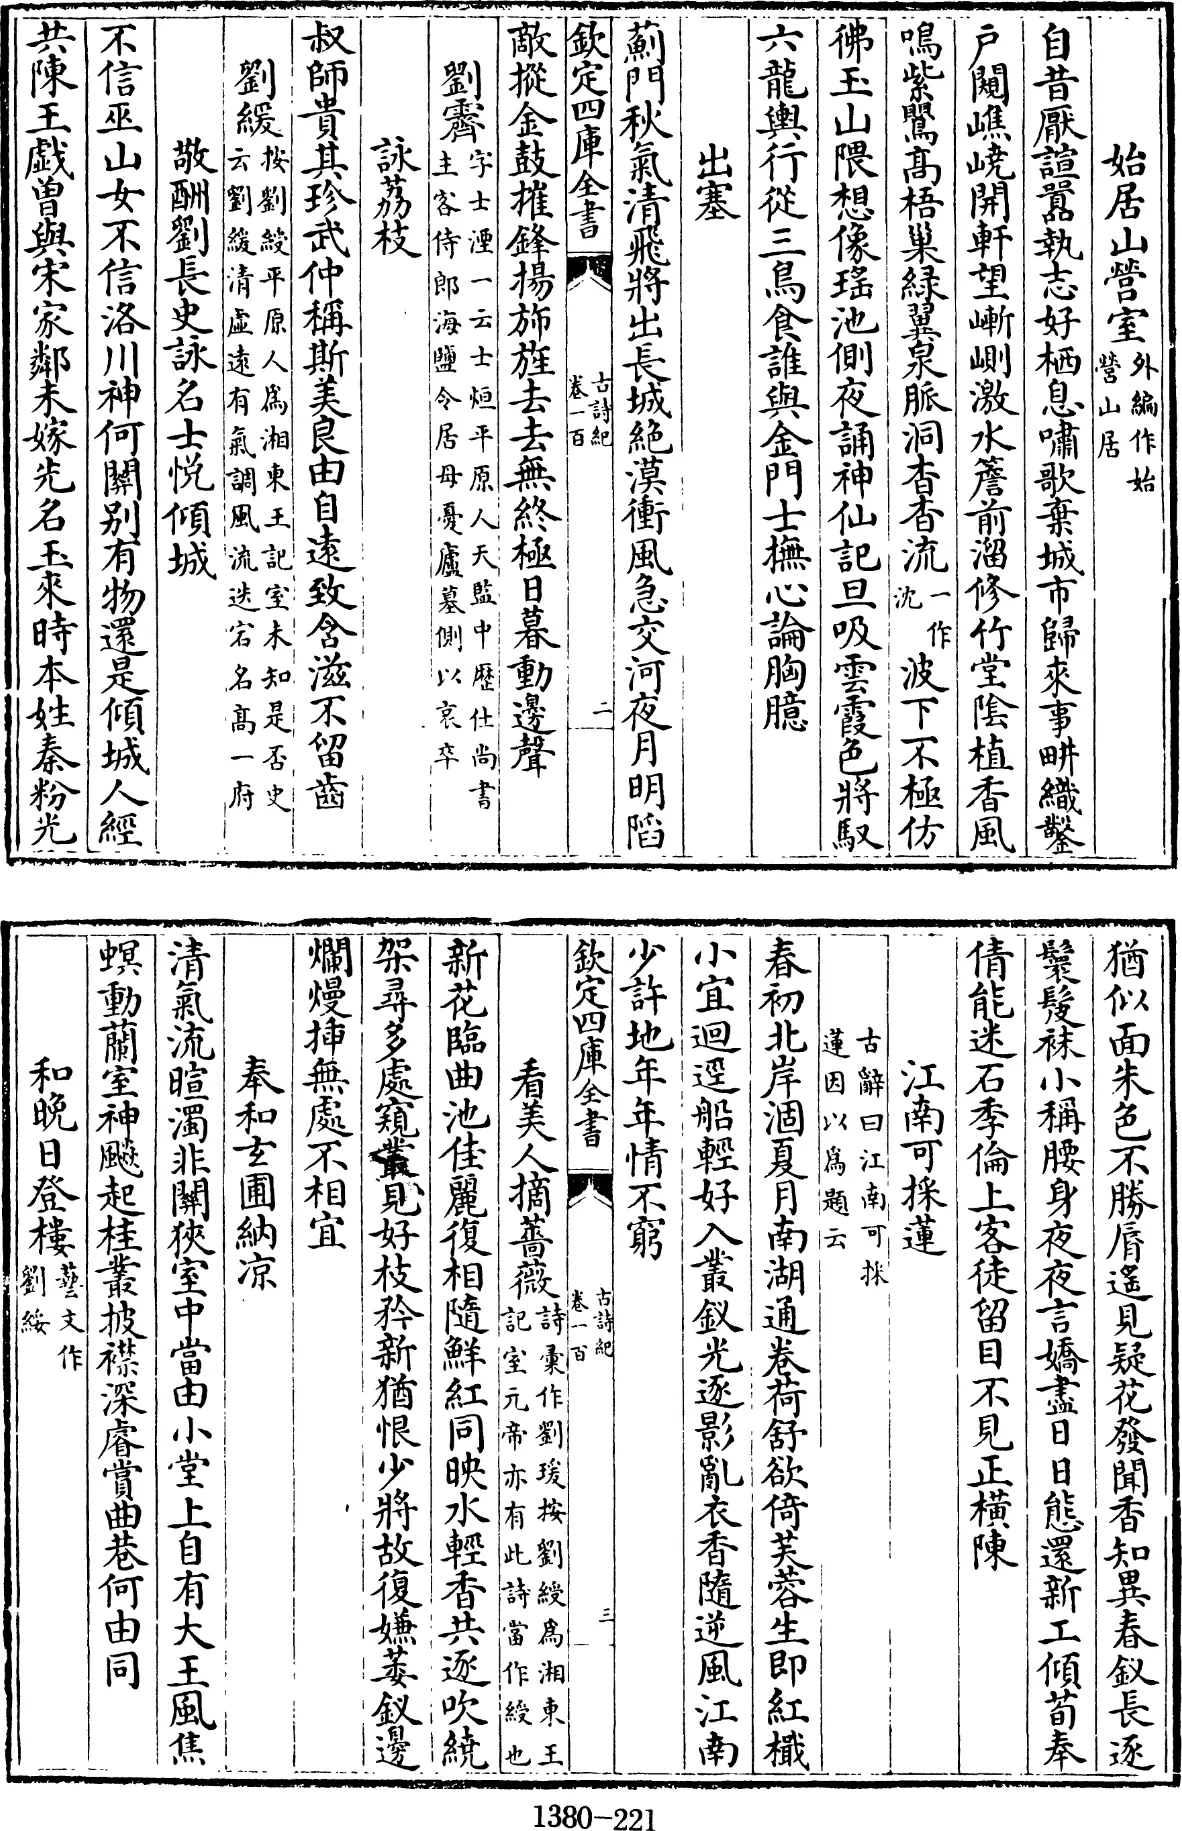 始居山營室外編作始營山居
自昔厭諠囂執志好栖息嘯歌棄城市歸來事畊織鑿
戶闚嶕嶢開軒望嶄崱激水簷前溜修竹堂陰植香風
鳴紫鸎髙梧巢緑翼泉脈洞杳杳流一作沈波下不極仿
彿玉山隈想像瑤池側夜誦神仙記旦吸雲霞色將馭
六龍輿行從三鳥食誰與金門士撫心論胸臆
出塞
薊門秋氣清飛將出長城絶漠衝風急交河夜月明䧟
欽定四庫全書
古詩紀
卷一百
二
敵摐金鼓摧鋒揚斾旌去去無終極日暮動邊聲
劉霽字士湮一云士烜平原人天監中歷仕尚書主客侍郎海鹽令居母憂廬墓側以哀卒
詠荔枝
叔師貴其珍武仲稱斯美良由自遠致含滋不留齒
劉緩按劉緩平原人爲湘東王記室未知是否史云劉緩清虛遠有氣調風流迭宕名髙一府
敬酬劉長史詠名士悦傾城
不信巫山女不信洛川神何關别有物還是傾城人經
共陳王戲曾與宋家鄰未嫁先名玉來時本姓秦粉光
猶似面朱色不勝脣遙見疑花發聞香知異春釵長逐
鬟髲袜小稱腰身夜夜言嬌盡日日態還新工傾荀奉
倩能迷石季倫上客徒留目不見正橫陳
江南可採蓮
古辭曰江南可採蓮因以爲題云
春初北岸涸夏月南湖通卷荷舒欲倚芙蓉生即紅檝
小宜迴逕船輕好入叢釵光逐影亂衣香隨逆風江南
少許地年年情不窮
欽定四庫全書
古詩紀
卷一百
三
看美人摘薔薇詩彙作劉瑗按劉緩爲湘東王記室元帝亦有此詩當作緩也
新花臨曲池佳麗復相隨鮮紅同映水輕香共逐吹繞
架尋多處窺叢見好枝矜新猶恨少將故復嫌萎釵邊
爛熳插無處不相宜
奉和玄圃納凉
清氣流暄濁非關狹室中當由小堂上自有大王風焦
螟動蘭室神飈起桂叢披襟深睿賞曲巷何由同
和晚日登樓藝文作劉綏
1380-221